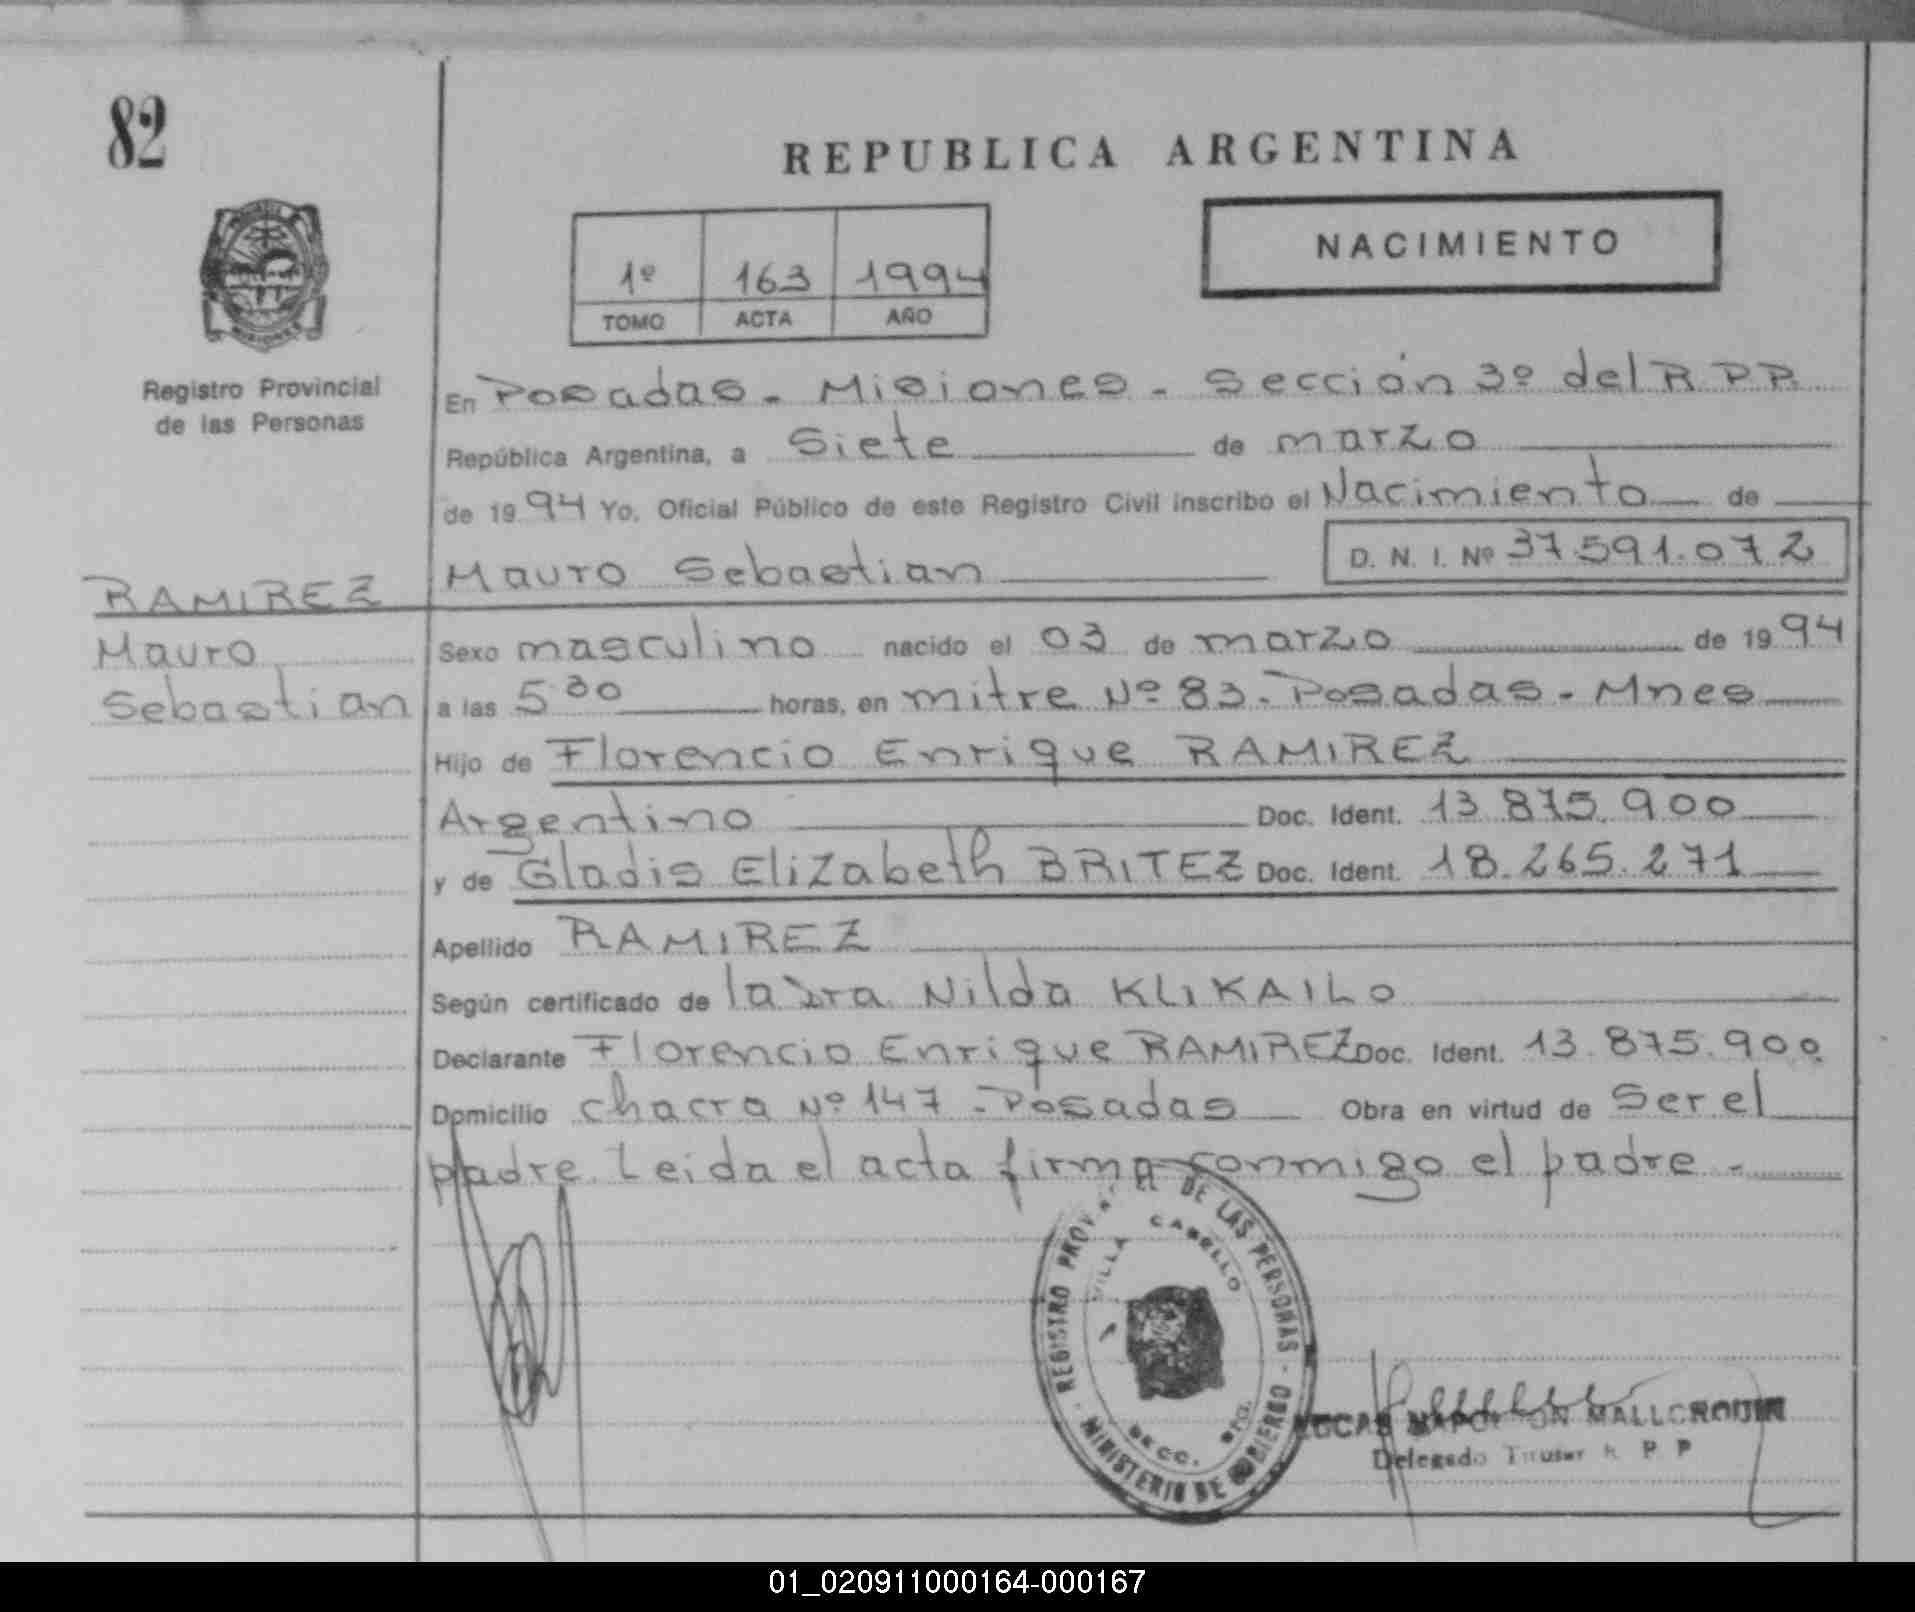 82
REPUBLICA ARGENTINA
NACIMIENTO
1º 163 1994
TOMO ACTA AÑO
MISIONES
Registro Provincial
de las Personas
En Posadas - Misiones - Sección 3º del R.P.P.
República Argentina, a Siete de marzo
de 1994 Yo, Oficial Público de este Registro Civil inscribo el Nacimiento de
Mauro Sebastian D. N. I. Nº 37.591.072
RAMIREZ
Mauro
Sebastian
Sexo masculino nacido el 03 de marzo de 1994
a las 5 30 horas, en mitre Nº 83 - Posadas - Mnes
Hijo de Florencio Enrique RAMIREZ
Argentino Doc. Ident. 13.875.900
y de Gladis Elizabeth BRITEZ Doc. Ident. 18.265.271
Apellido RAMIREZ
Según certificado de la Dra Nilda KLIKAILO
Declarante Florencio Enrique RAMIREZ Doc. Ident. 13.875.900
Domicilio chacra Nº 147 - Posadas Obra en virtud de Ser el
padre. Leida el acta firma conmigo el padre -
REGISTRO PROV. DE LAS PERSONAS - MINISTERIO DE GOBIERNO -
VILLA CABELLO
SECC.
MALLORQUIN
Delegado Titular R. P. P
01_020911000164-000167